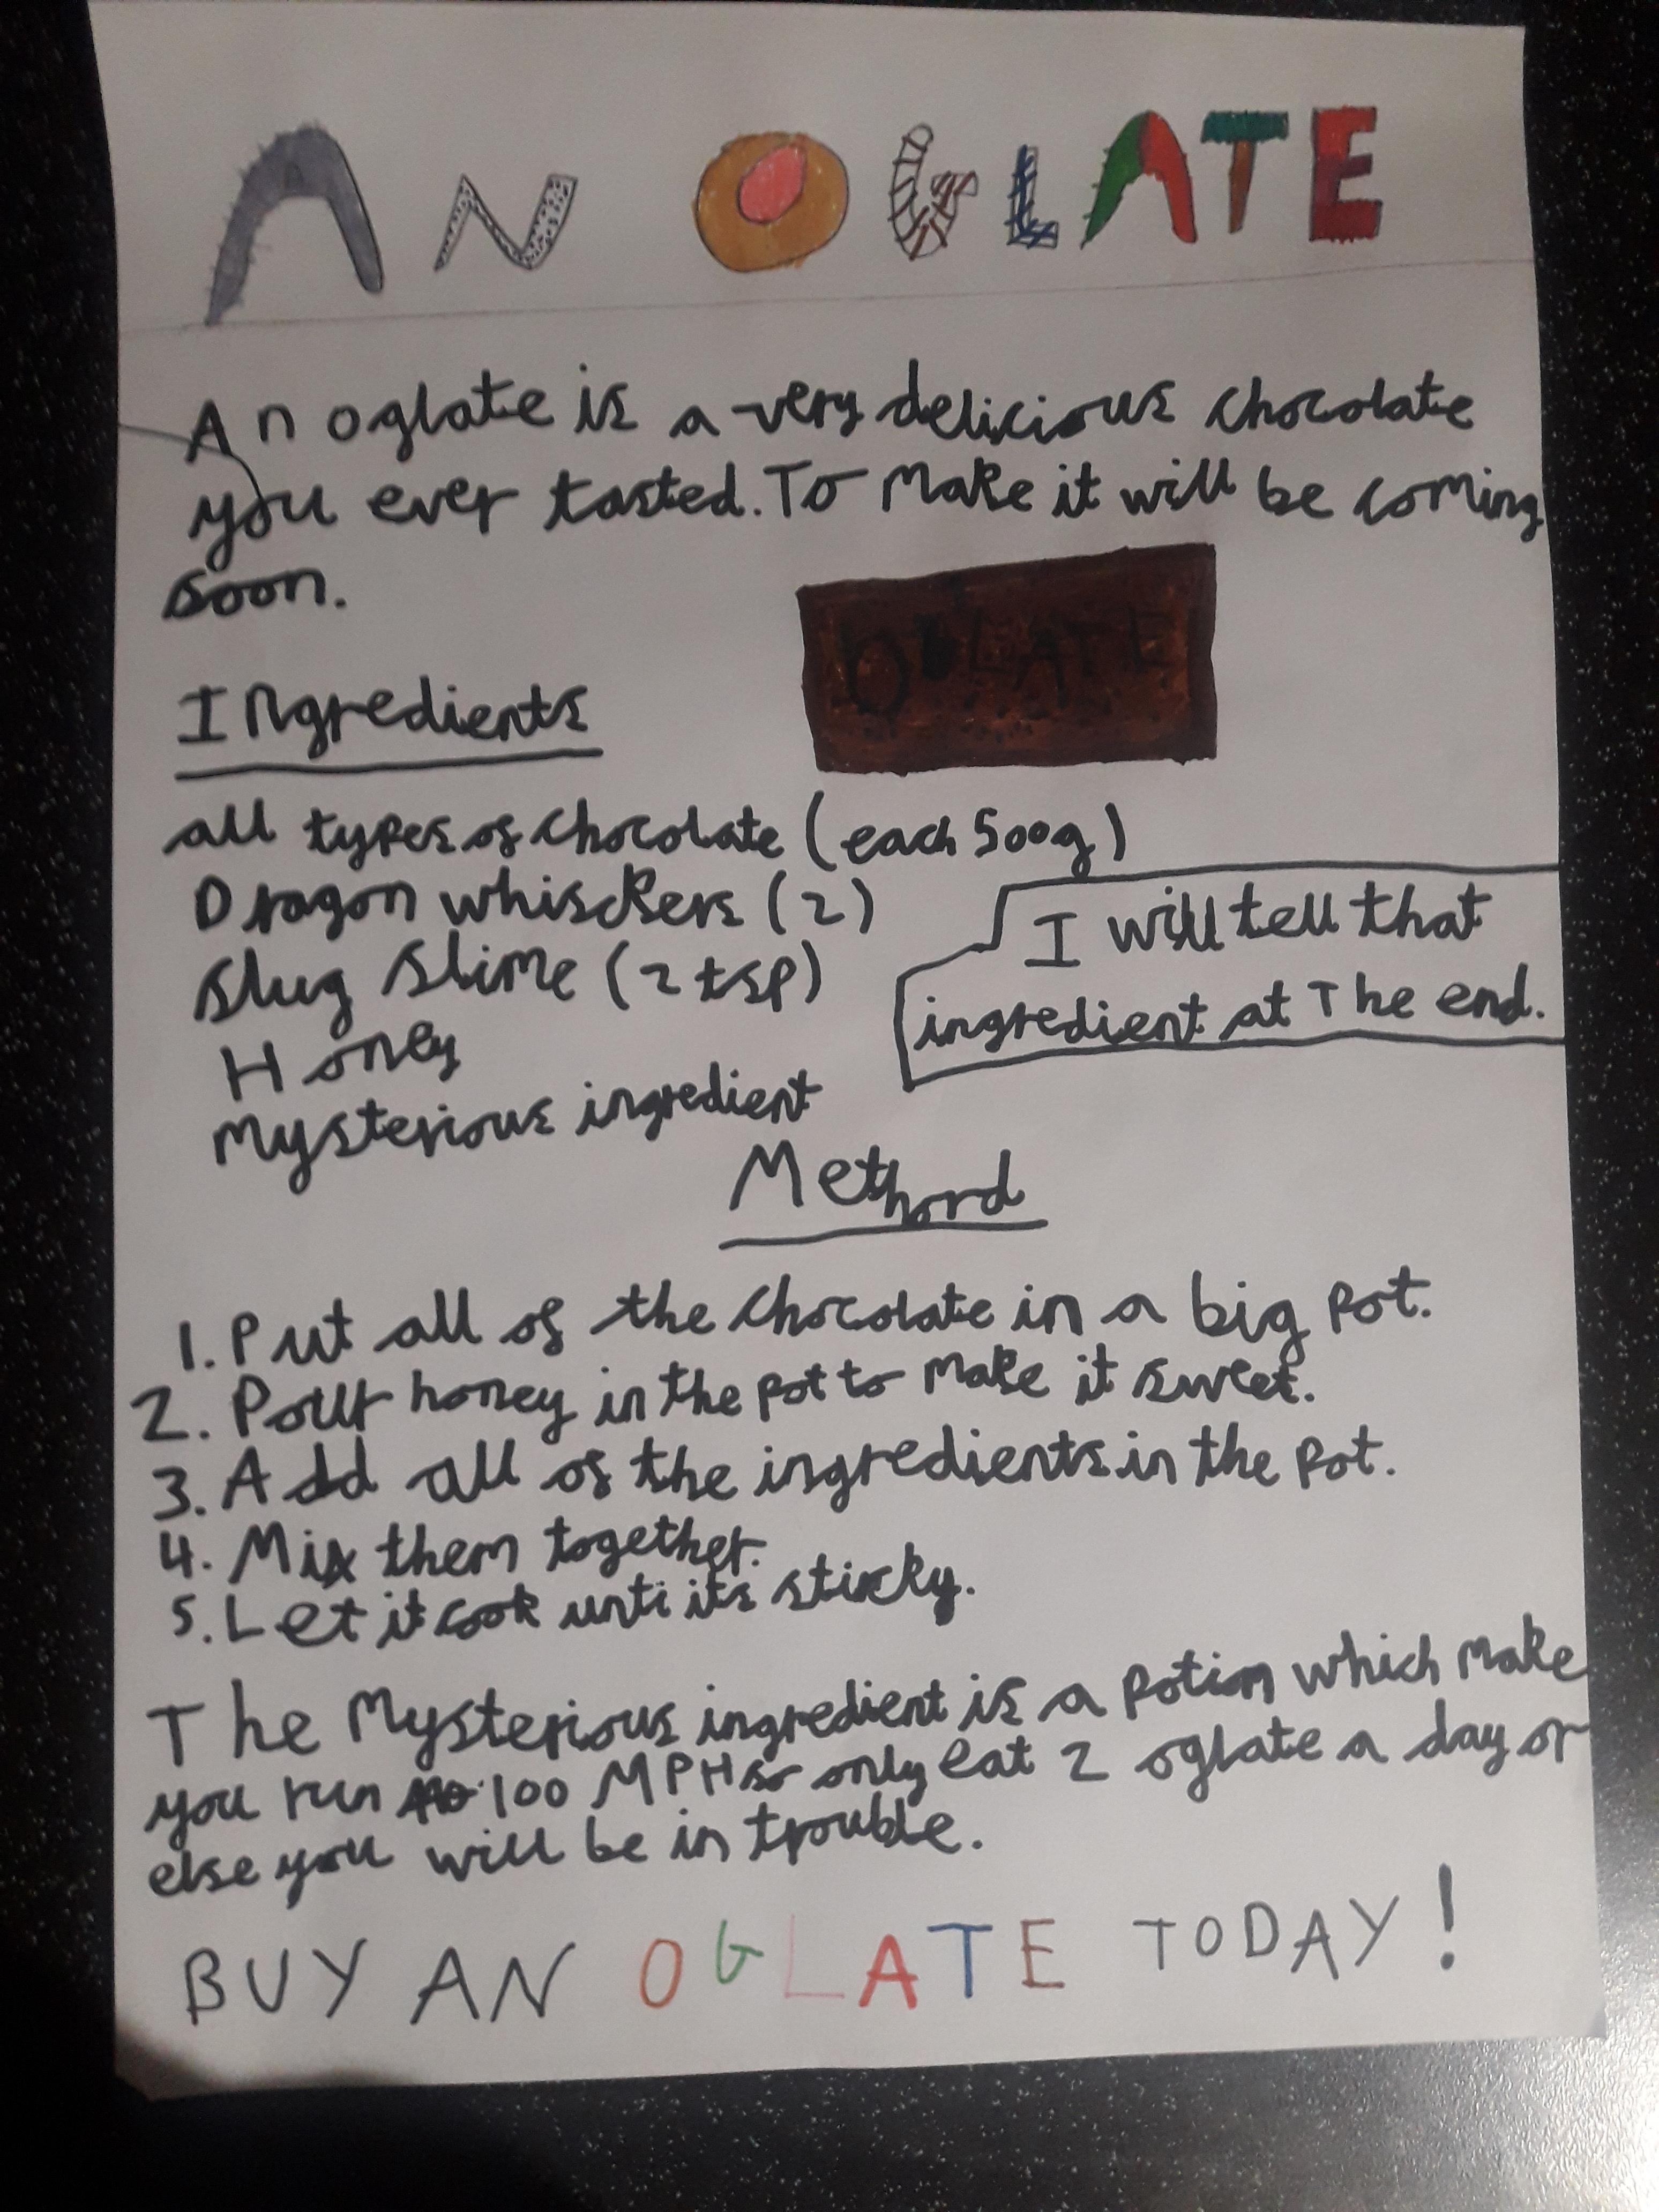 AN OGLATE
An oglate is a very delicious chocolate
you ever tasted. To make it will be coming
soon.
OGLATE
Ingredients
all types of chocolate (each 500g)
Dragon whisckers (2)
Slug slime (2 tsp)
Honey
Mysterious ingredient
I will tell that
ingredient at The end.
Methord
1. Put all of the chocolate in a big pot.
2. Pour honey in the pot to make it sweet.
3. Add all of the ingredients in the pot.
4. Mix them together.
5. Let it cook unti its sticky.
The Mysterious ingredient is a potion which make
you run 100 MPH so only eat 2 oglate a day or
else you will be in trouble.
BUY AN OGLATE TODAY!